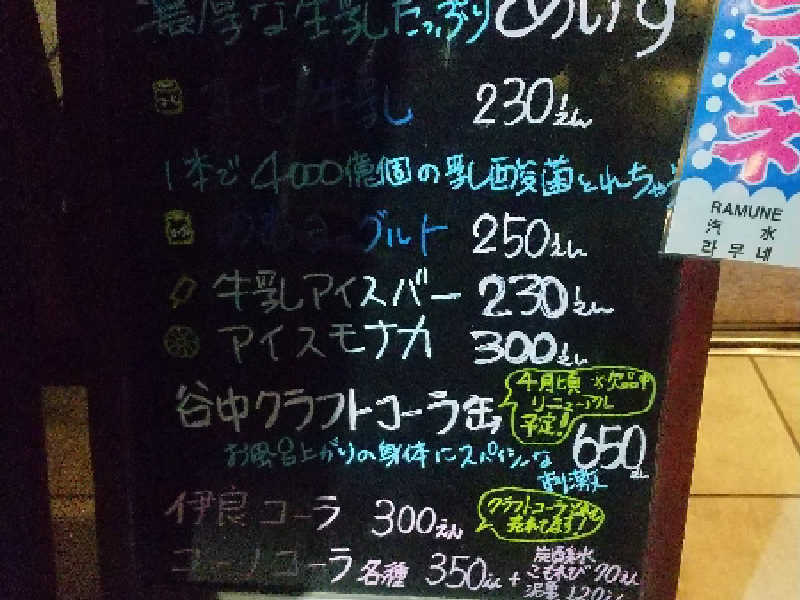 濃厚な生乳たっぷり
牛乳 230えん
1本で4000億個の乳酸菌とれちゃう
ヨーグルト 250えん
牛乳アイスバー 230えん
アイスモナカ 300えん
谷中クラフトコーラ缶
4月頃 ※欠品中
リニューアル
予定!
650えん
お風呂上がりの身体にスパイシーな
刺激を
伊良コーラ 300えん
クラフトコーラ
売れてます
コーラ各種 350えん+
炭酸泉水
こもれび 70えん
泥炭 120えん
ラムネ
RAMUNE
汽水
라무네